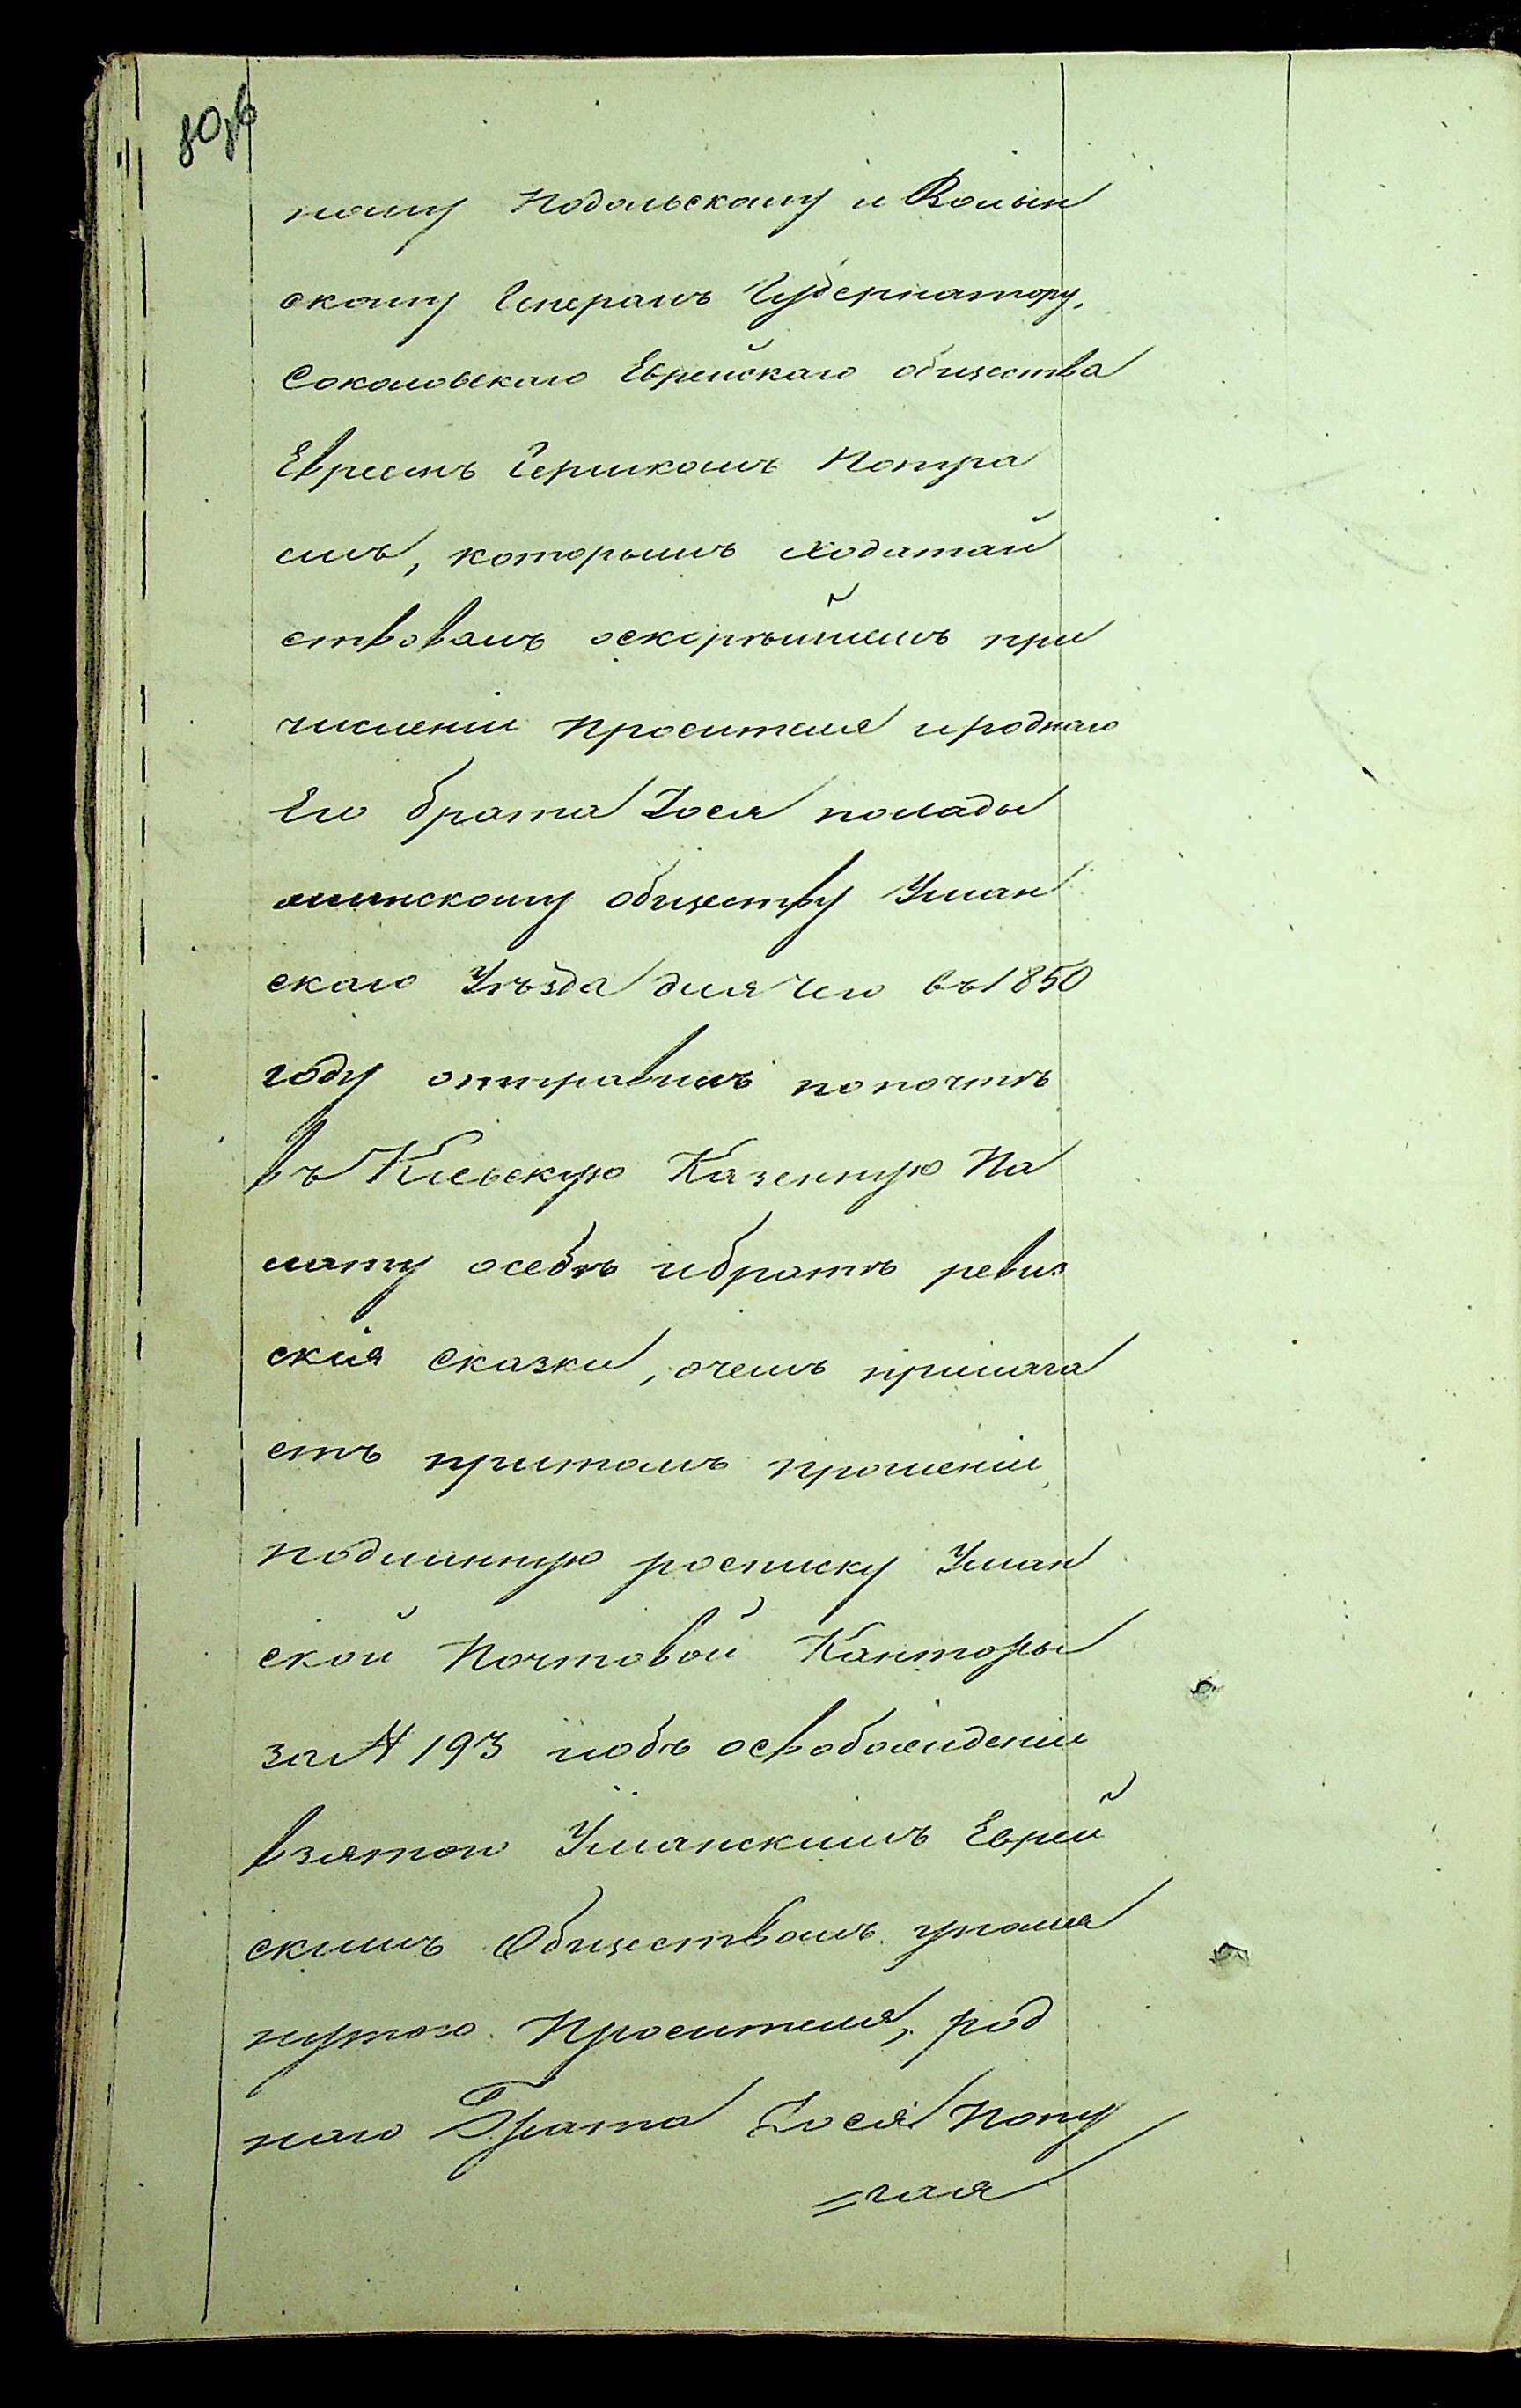 ному Подольскому и Волын
скому Генералъ Губернатору,
Соколовскаго Еврейскаго общества
Евреемъ Гершкомъ
которымъ ходатай
ствовалъ оскорѣйшемъ при
численіи Просителя и роднаго
Его брата Іося полады
жинскому обществу Уман
скаго Уѣзда для чего въ 1850
году отправилъ попочтѣ
въ Кіевскую Казенную Па
лату осебѣ ибратѣ ревиз
скія Сказки, очемъ прилага
етъ притомъ прошеніи,
подлинную росписку Уман
ской Почтовой Канторы
за № 193 иобъ освобожденіи
взятого Уманскимъ Еврей
скимъ Обществомъ упомя
нутого Просителя, род
наго Брата Іося Попу
=гая